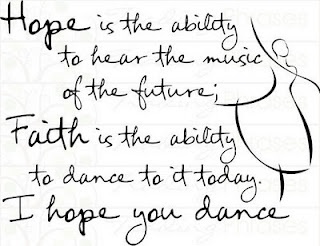 Hope is the ability
to hear the music
of the future;
Faith is the ability
to dance to it today.
I hope you dance